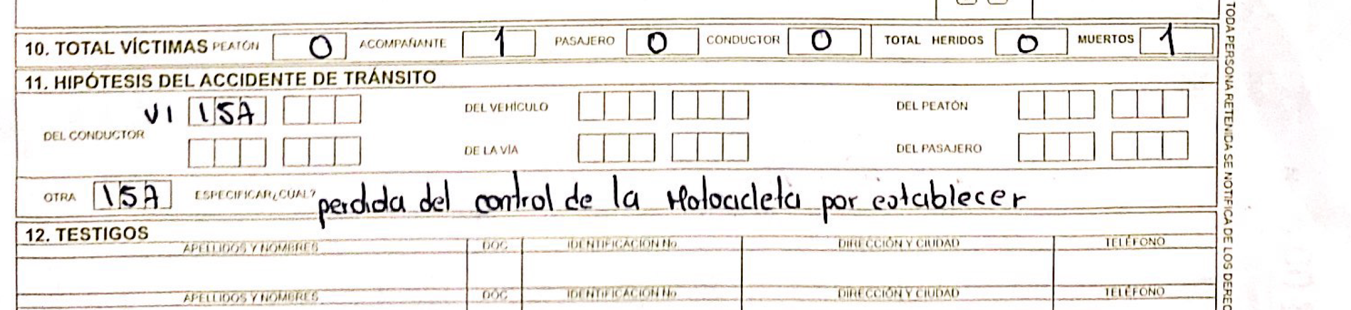 10. TOTAL VÍCTIMAS PEATÓN 0 ACOMPAÑANTE 1 PASAJERO 0 CONDUCTOR 0 TOTAL HERIDOS 0 MUERTOS 1
11. HIPÓTESIS DEL ACCIDENTE DE TRÁNSITO
DEL CONDUCTOR V1 15A DEL VEHÍCULO DEL PEATÓN
DE LA VÍA DEL PASAJERO
OTRA 15A ESPECIFICAR ¿CUAL? perdida del control de la Motocicleta por establecer
12. TESTIGOS
APELLIDOS Y NOMBRES DOC IDENTIFICACIÓN No DIRECCIÓN Y CIUDAD TELÉFONO
APELLIDOS Y NOMBRES DOC IDENTIFICACIÓN No DIRECCIÓN Y CIUDAD TELÉFONO
TODA PERSONA RETENIDA SE NOTIFICA DE LOS